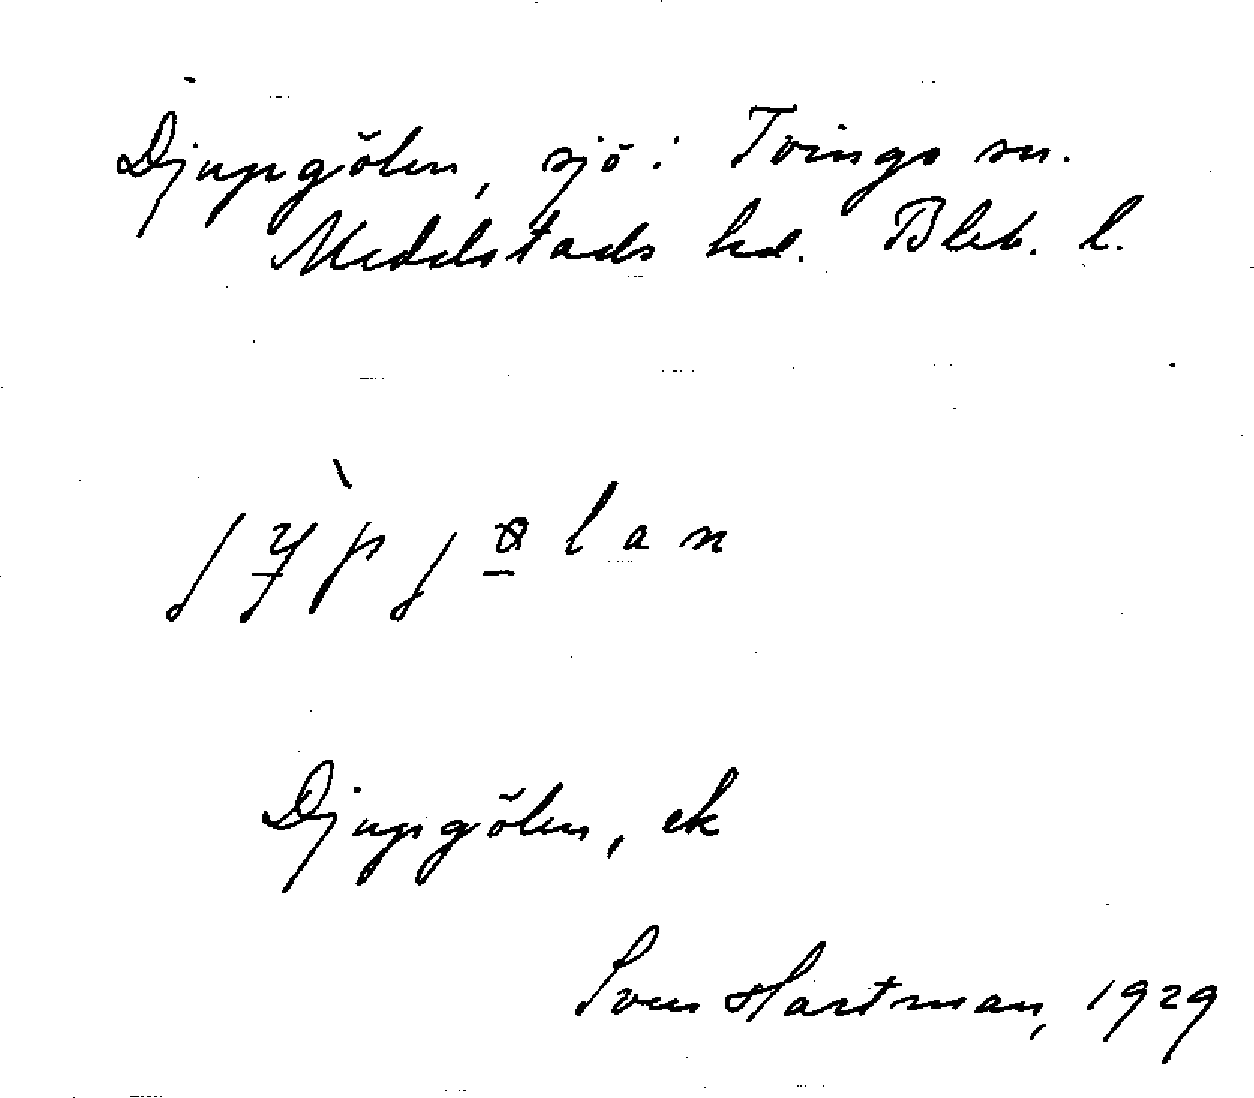 Djupgölen, sjö i Tvings sn.
Medelstads hd. Blek. l.
Djupgölen, ek
Sven Hartman, 1929